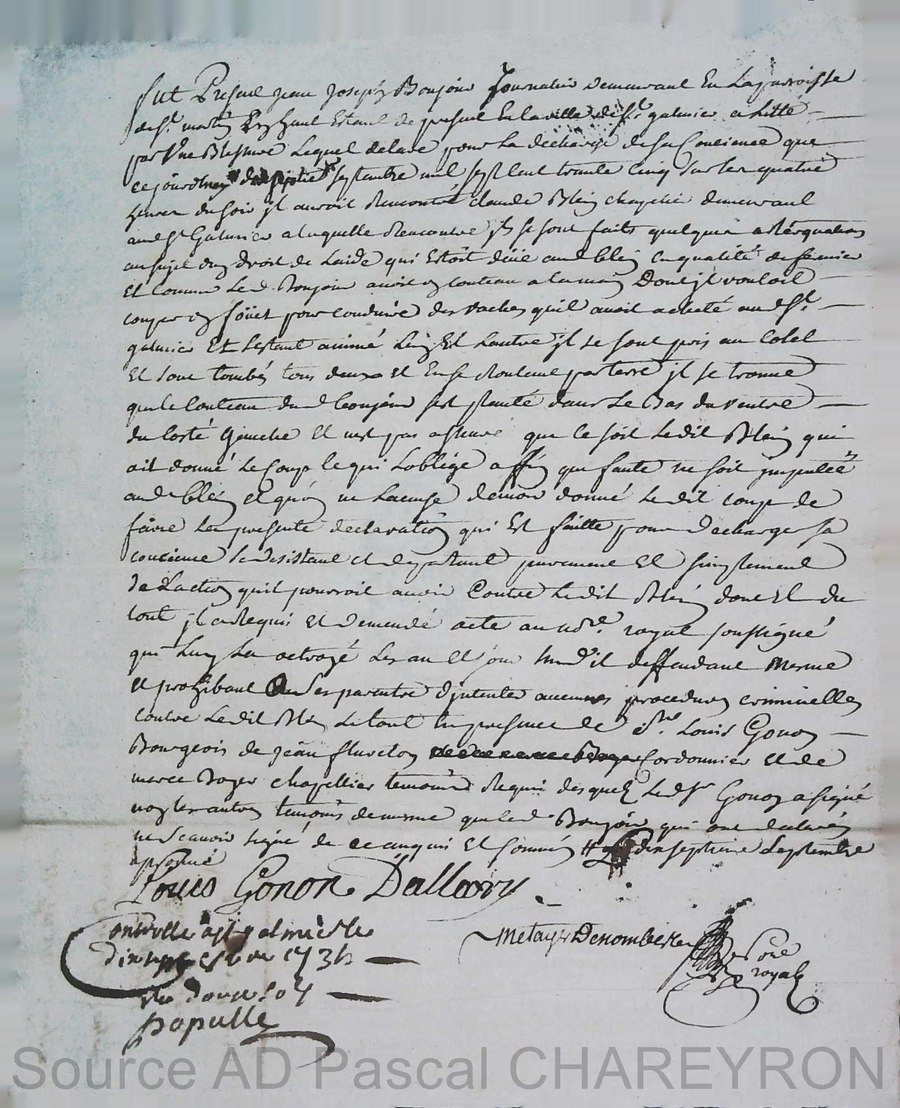 fut Present Jean Joseph Bonjour Journalier demeurant En La parroisse
de St. martin Estant de present En la ville de St. galmier a Litte
par Une Blessure Lequel declare pour La decharge de sa Concience que
ce jourdhuy septembre mil sept Cent trente Cinq sur les quatre
heures du soir jl auroit Rencontré claude Blein chapelier demeurant
aud. St Galmier a laquelle Rencontre jls se sont faits quelques altercquations
au sujet du droit de Laide qui Estoit düe aud. blein En qualité de fermier
Et Comme Led. Bonjour avoit un couteau a la main Dont jl vouloit
couper un foüet pour conduire des vaches quil avoit acheté aud. St.
galmier Et s'estant animé L'un Et L'autre jl se sont pris au Colet
Et sont tombés tous deux et En se Roulent par terre jl se trouve
que le Couteau dud. bonjour s'est planté dans Le Bas du ventre
du Costé Gauche Et n'est pas asseure que ce soit Ledit Blein qui
ait donné Le Coup ce qui L'oblige affin que faute ne soit jmputée
aud. blein et qu'on ne L'accuse d'avoir donné Le dit coup de
faire La presente declaration qui Est faitte pour decharger sa
concience se desistant et departant purement Et simplement
de L'action quil pourroit avoir Contre Ledit Blein dont Et du
tout jl a Requi Et demendé acte au nore. royal soussigné
qui Luy La octroyé Les an Et jour susd. deffendant mesme
Et prohibant a ses parents d'jntenter aucunes procedures criminelles
contre Ledit Blein Le tout En presence de Sr. Louis Gonon
Bourgeois de jean fleury Cordonnier et de
Boyer chapellier temoins Requi desquels Led. Sr Gonon a signé
non les autres temoins de mesme que led. Bonjour qui ont declarés
ne scavoir signé de ce enquis Et Sommés dixseptieme septembre
aprouvé
Louis Gonon Dallary
Controllé a St galmier le
dix sept 7bre 1735
reçu douze sols
papulle
Metayer Denombret Nore
royal
Source AD Pascal CHAREYRON